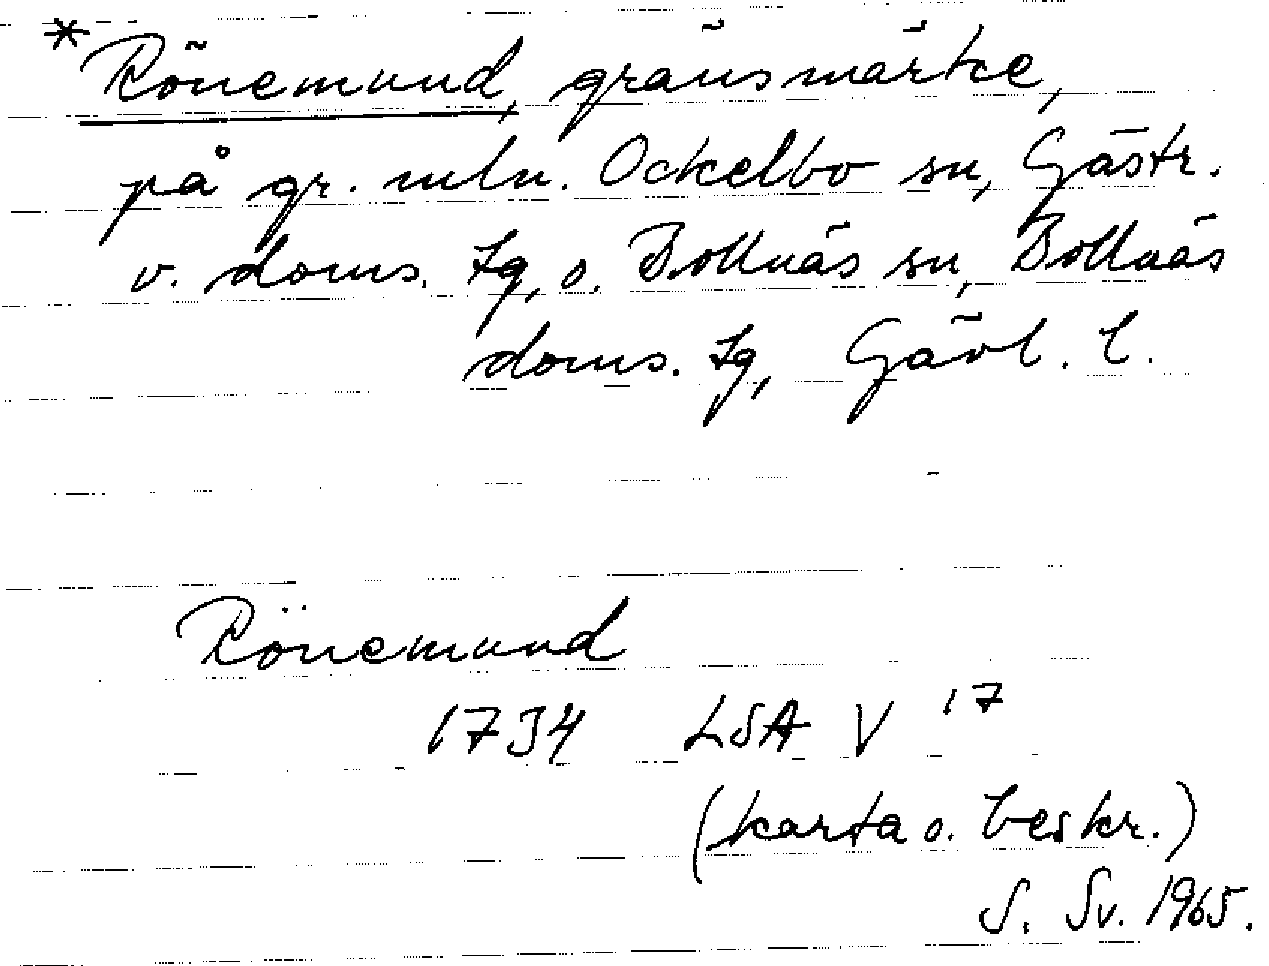 * Rönemund, gränsmärke,
på gr. mln. Ockelbo sn, Gästr.
v. doms. lg, o. Bollnäs sn, Bollnäs
doms. lg, Gävl. l.
Rönemund
1734 LSA V 17
(karta o. beskr.)
S. Sv. 1965.